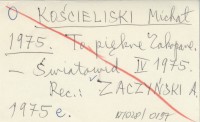 O KOŚCIELISKI Michał
1975. To piękne Zakopane.
– Światowid IV 1975.
Rec.: ZACZYŃSKI A.
1975 e.